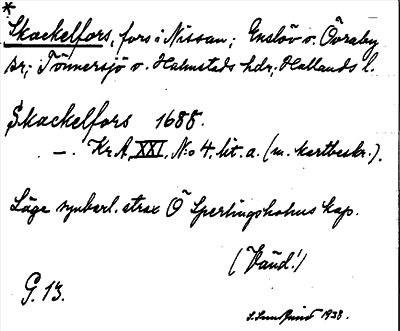 *
Skackelfors, fors i Nissan; Enslöv o. Övraby
sr; Tönnersjö o. Halmstads hdr; Hallands l.
Skackelfors 1688.
—. Kr.A. XXI, N:o 4. lit. a. (m. kartbeskr.).
Läge synbarl. strax Ö Sperlingsholms kap.
(Vänd!)
G. 13.
1938.